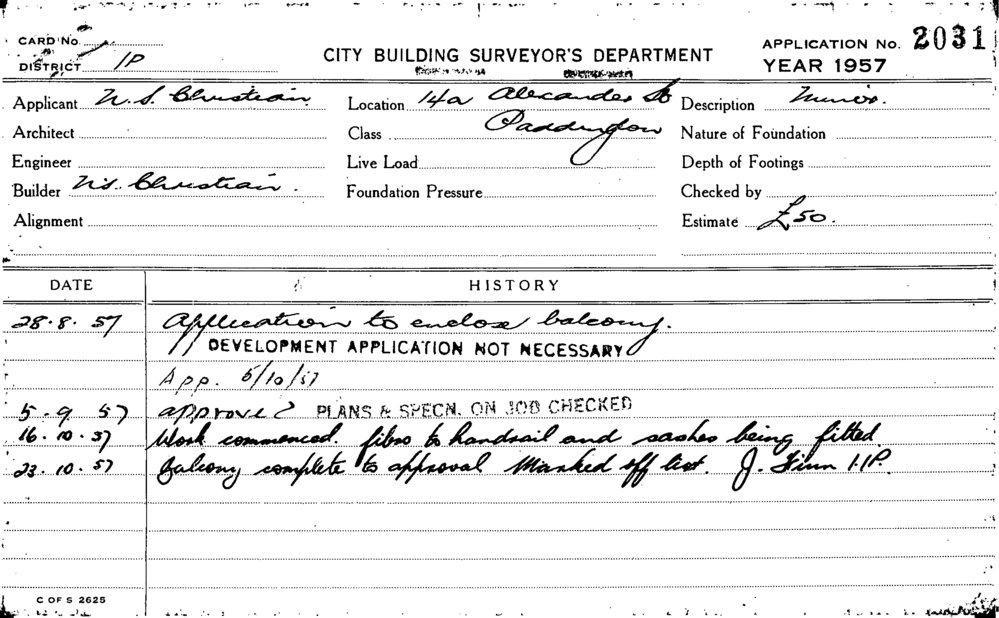 CARD No.
APPLICATION No. 2031
CITY BUILDING SURVEYOR'S DEPARTMENT
DISTRICT 1P
YEAR 1957
Applicant N. S. Christian Location 14a Alexander St Description Minor.
Architect Class Paddington Nature of Foundation
Engineer Live Load Depth of Footings
Builder N.S. Christian. Foundation Pressure Checked by
Alignment Estimate £50.
DATE HISTORY
28.8.57 Application to enclose balcony.
DEVELOPMENT APPLICATION NOT NECESSARY
App. 5/10/57
5.9.57 approved PLANS & SPECN. ON JOB CHECKED
16.10.57 Work commenced. fibro to handrail and sashes being fitted
23.10.57 Balcony complete to approval Marked off list. J. Finn 1.P.
C OF S 2625